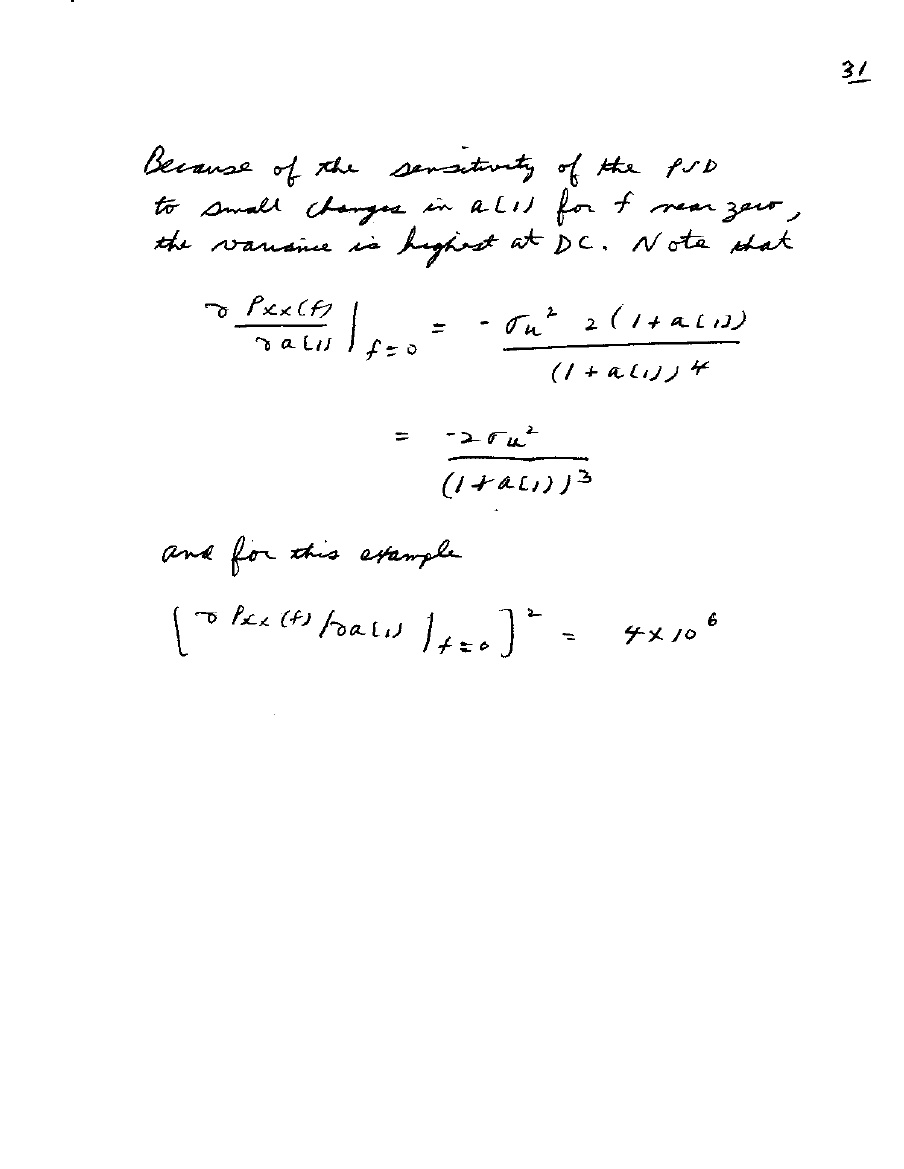 31
Because of the sensitivity of the PSD
to small changes in a[1] for f near zero,
the variance is highest at DC. Note that
∂ Pxx(f) / ∂a[1] |f=0 = - σu² 2(1+a[1]) / (1+a[1])⁴
= -2σu² / (1+a[1])³
and for this example
[∂ Pxx(f)/∂a[1] |f=0]² = 4×10⁶